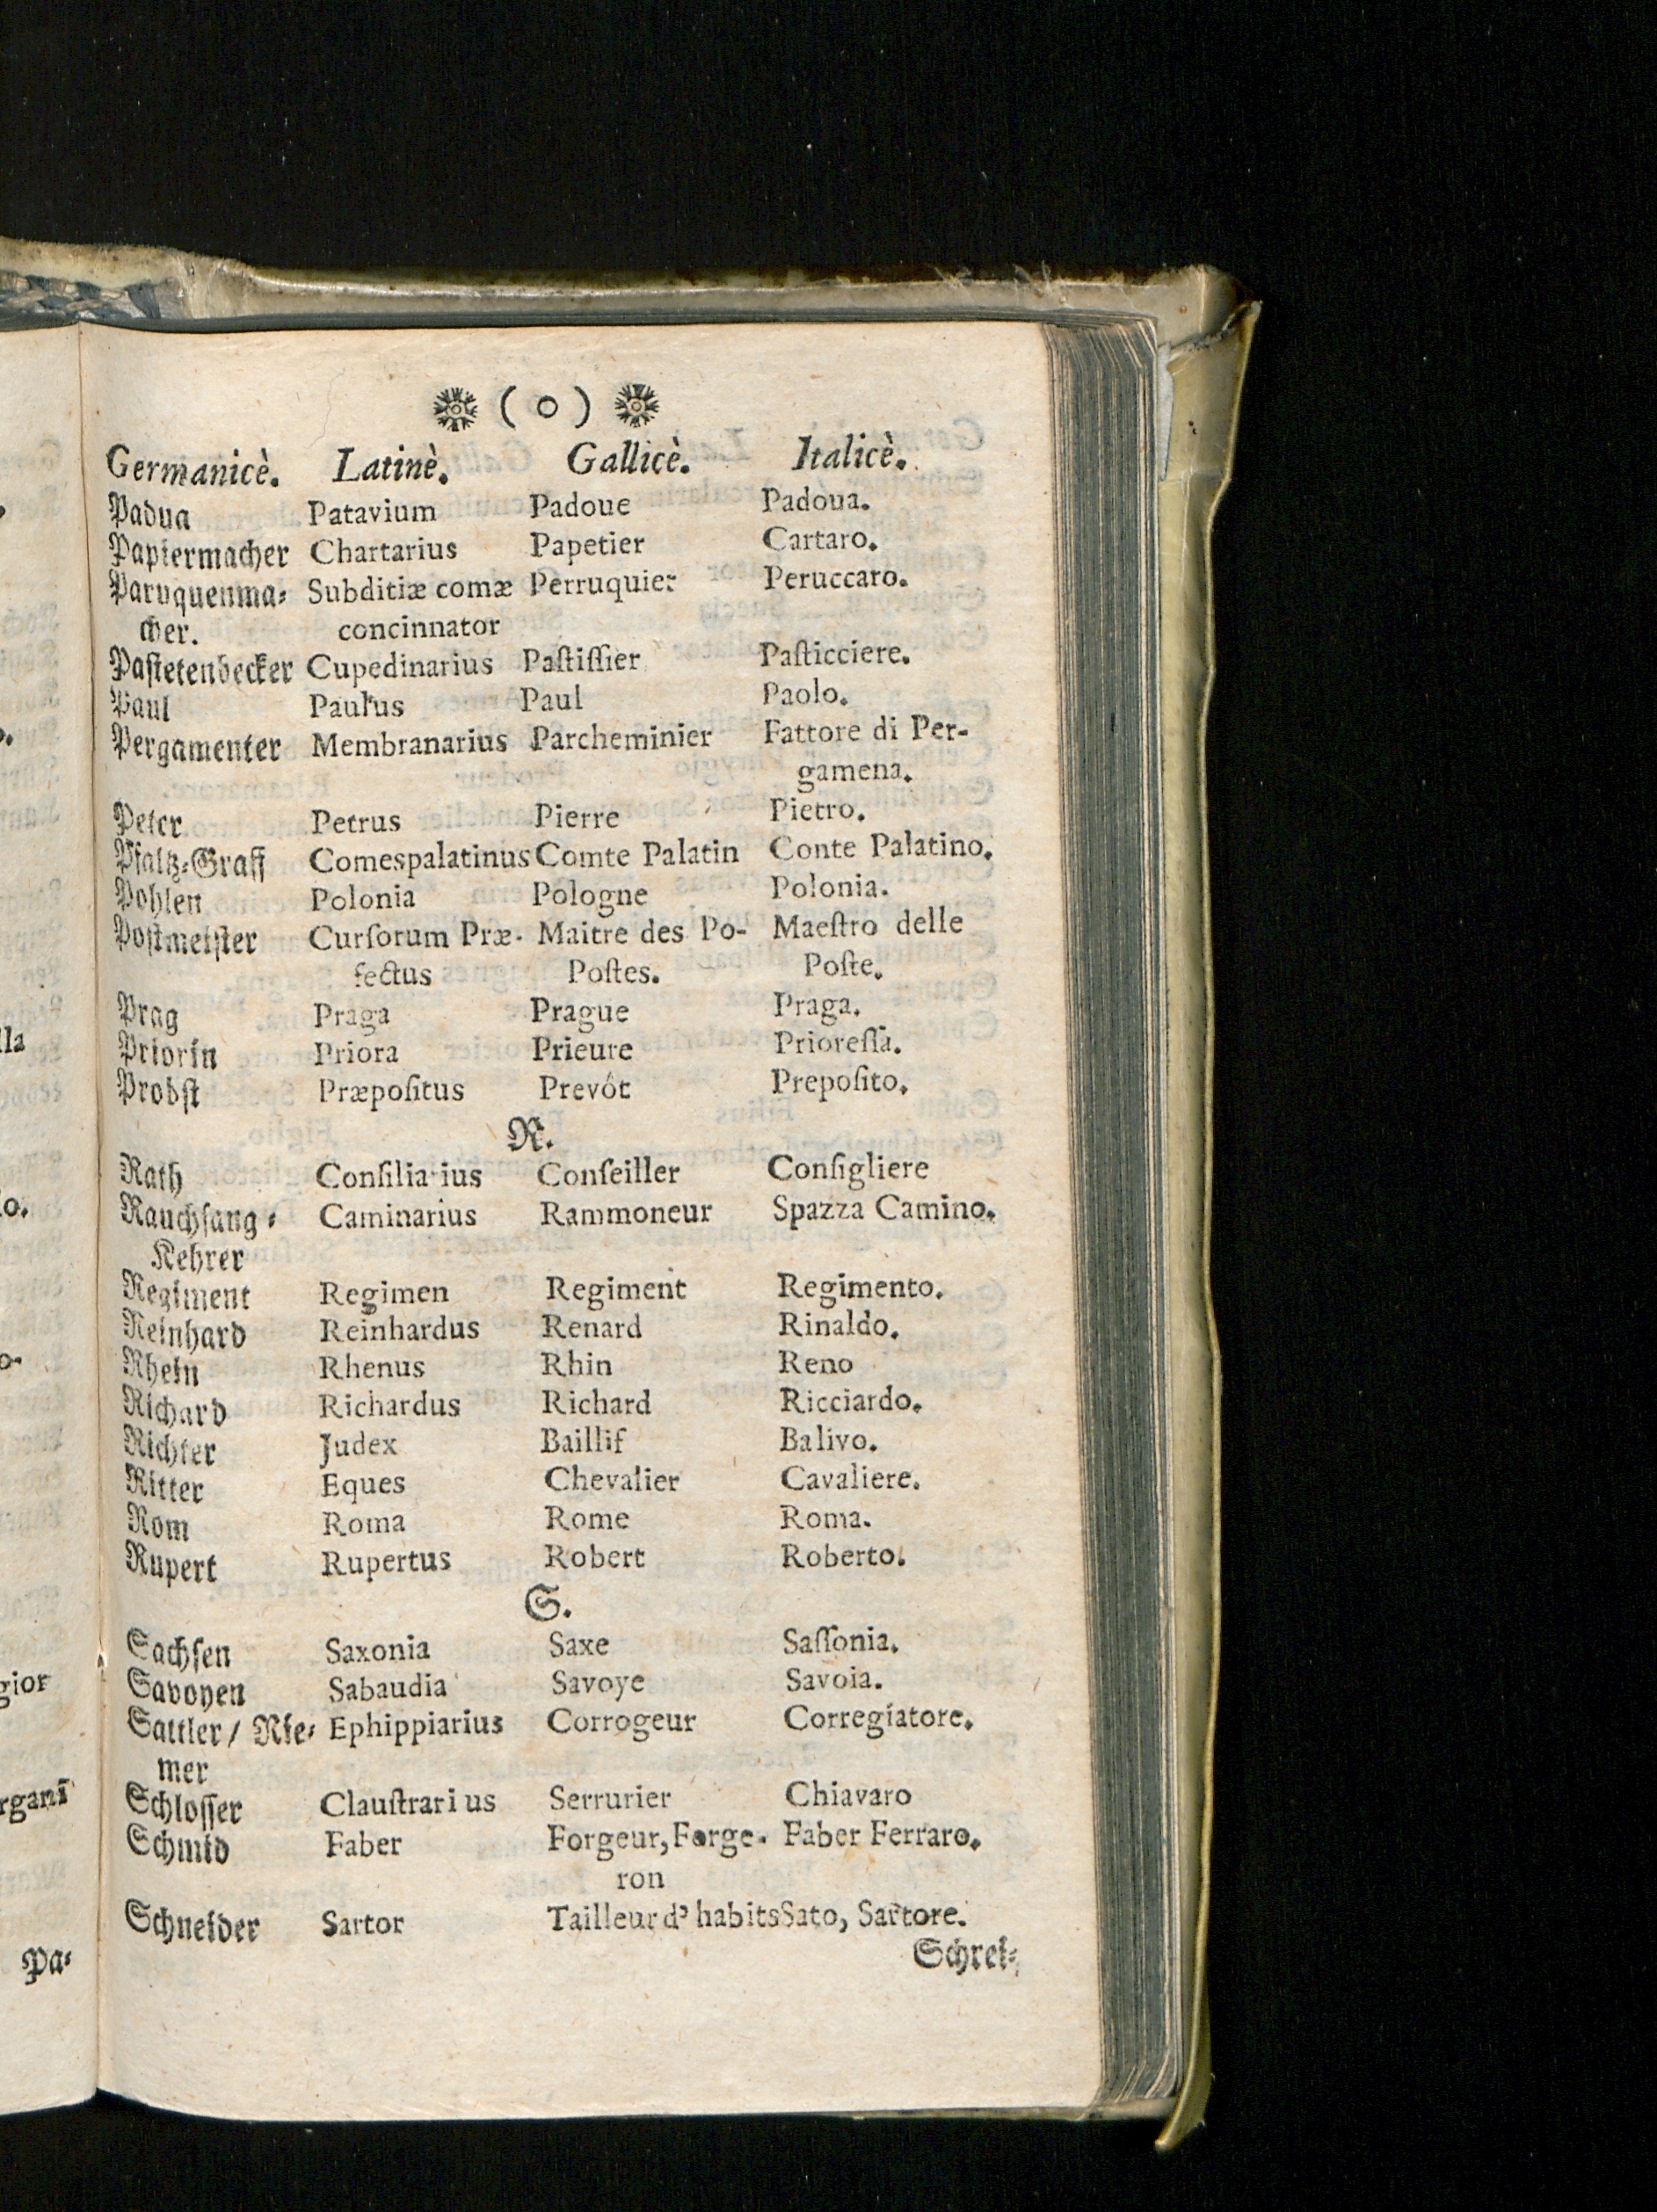 ( o )
Germanicè. Latinè. Gallicè. Italicè.
Padua Patavium Padoue Padoua.
Papiermacher Chartarius Papetier Cartaro.
Paruquenma⸗ Subditiæ comæ Perruquier Peruccaro.
cher. concinnator
Pastetenbecker Cupedinarius Paſtiſſier Paſticciere.
Paul Paulus Paul Paolo.
Pergamenter Membranarius Parcheminier Fattore di Per-
gamena.
Peter Petrus Pierre Pietro.
Pfaltz⸗Graff Comespalatinus Comte Palatin Conte Palatino.
Pohlen Polonia Pologne Polonia.
Poſtmeiſter Curſorum Præ- Maitre des Po- Maeſtro delle
fectus Poſtes. Poſte.
Prag Praga Prague Praga.
Priorin Priora Prieure Prioreſſa.
Probſt Præpoſitus Prevôt Prepoſito.
R.
Rath Conſiliarius Conſeiller Conſigliere
Rauchfang⸗ Caminarius Rammoneur Spazza Camino.
Kehrer
Regiment Regimen Regiment Regimento.
Reinhard Reinhardus Renard Rinaldo.
Rhein Rhenus Rhin Reno
Richard Richardus Richard Ricciardo.
Richter Judex Baillif Balivo.
Ritter Eques Chevalier Cavaliere.
Rom Roma Rome Roma.
Rupert Rupertus Robert Roberto.
S.
Sachſen Saxonia Saxe Saſſonia.
Savoyen Sabaudia Savoye Savoia.
Sattler / Rie⸗ Ephippiarius Corrogeur Corregiatore.
mer
Schloſſer Clauſtrarius Serrurier Chiavaro
Schmid Faber Forgeur, Forge- Faber Ferraro.
ron
Schneider Sartor Tailleur d'habits Sato, Sartore.
Schrei⸗
lla
io.
o-
gior
rgani
Pa⸗